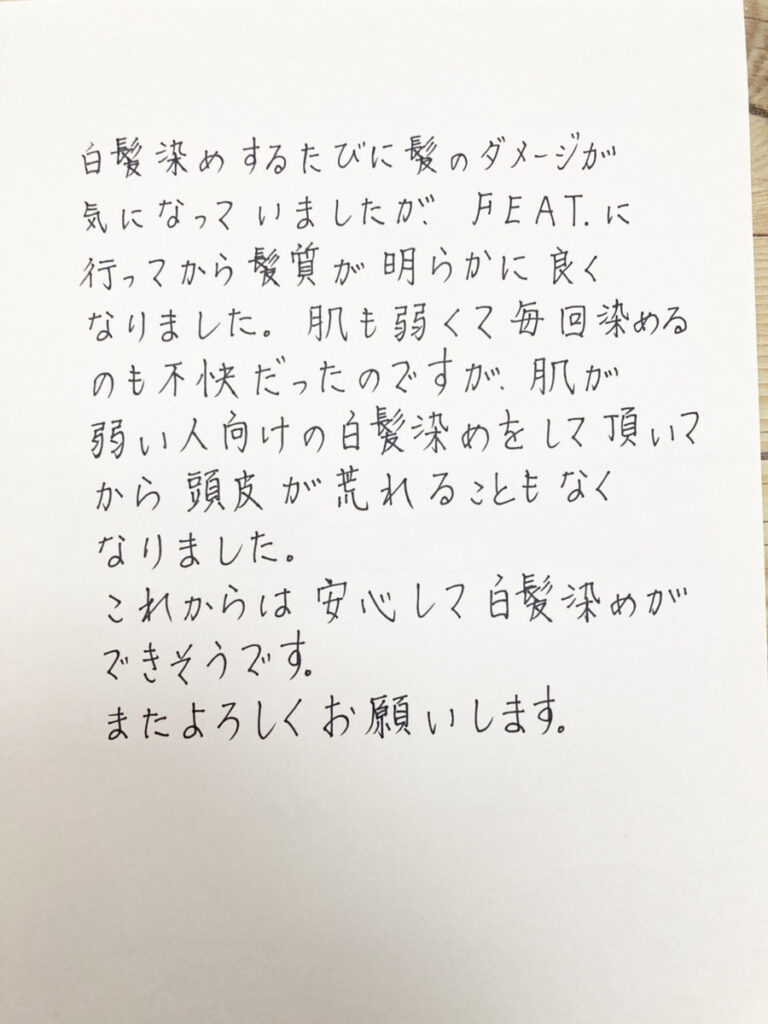 白髪染めするたびに髪のダメージが
気になっていましたが、FEAT.に
行ってから髪質が明らかに良く
なりました。肌も弱くて毎回染める
のも不快だったのですが、肌が
弱い人向けの白髪染めをして頂いて
から頭皮が荒れることもなく
なりました。
これからは安心して白髪染めが
できそうです。
またよろしくお願いします。